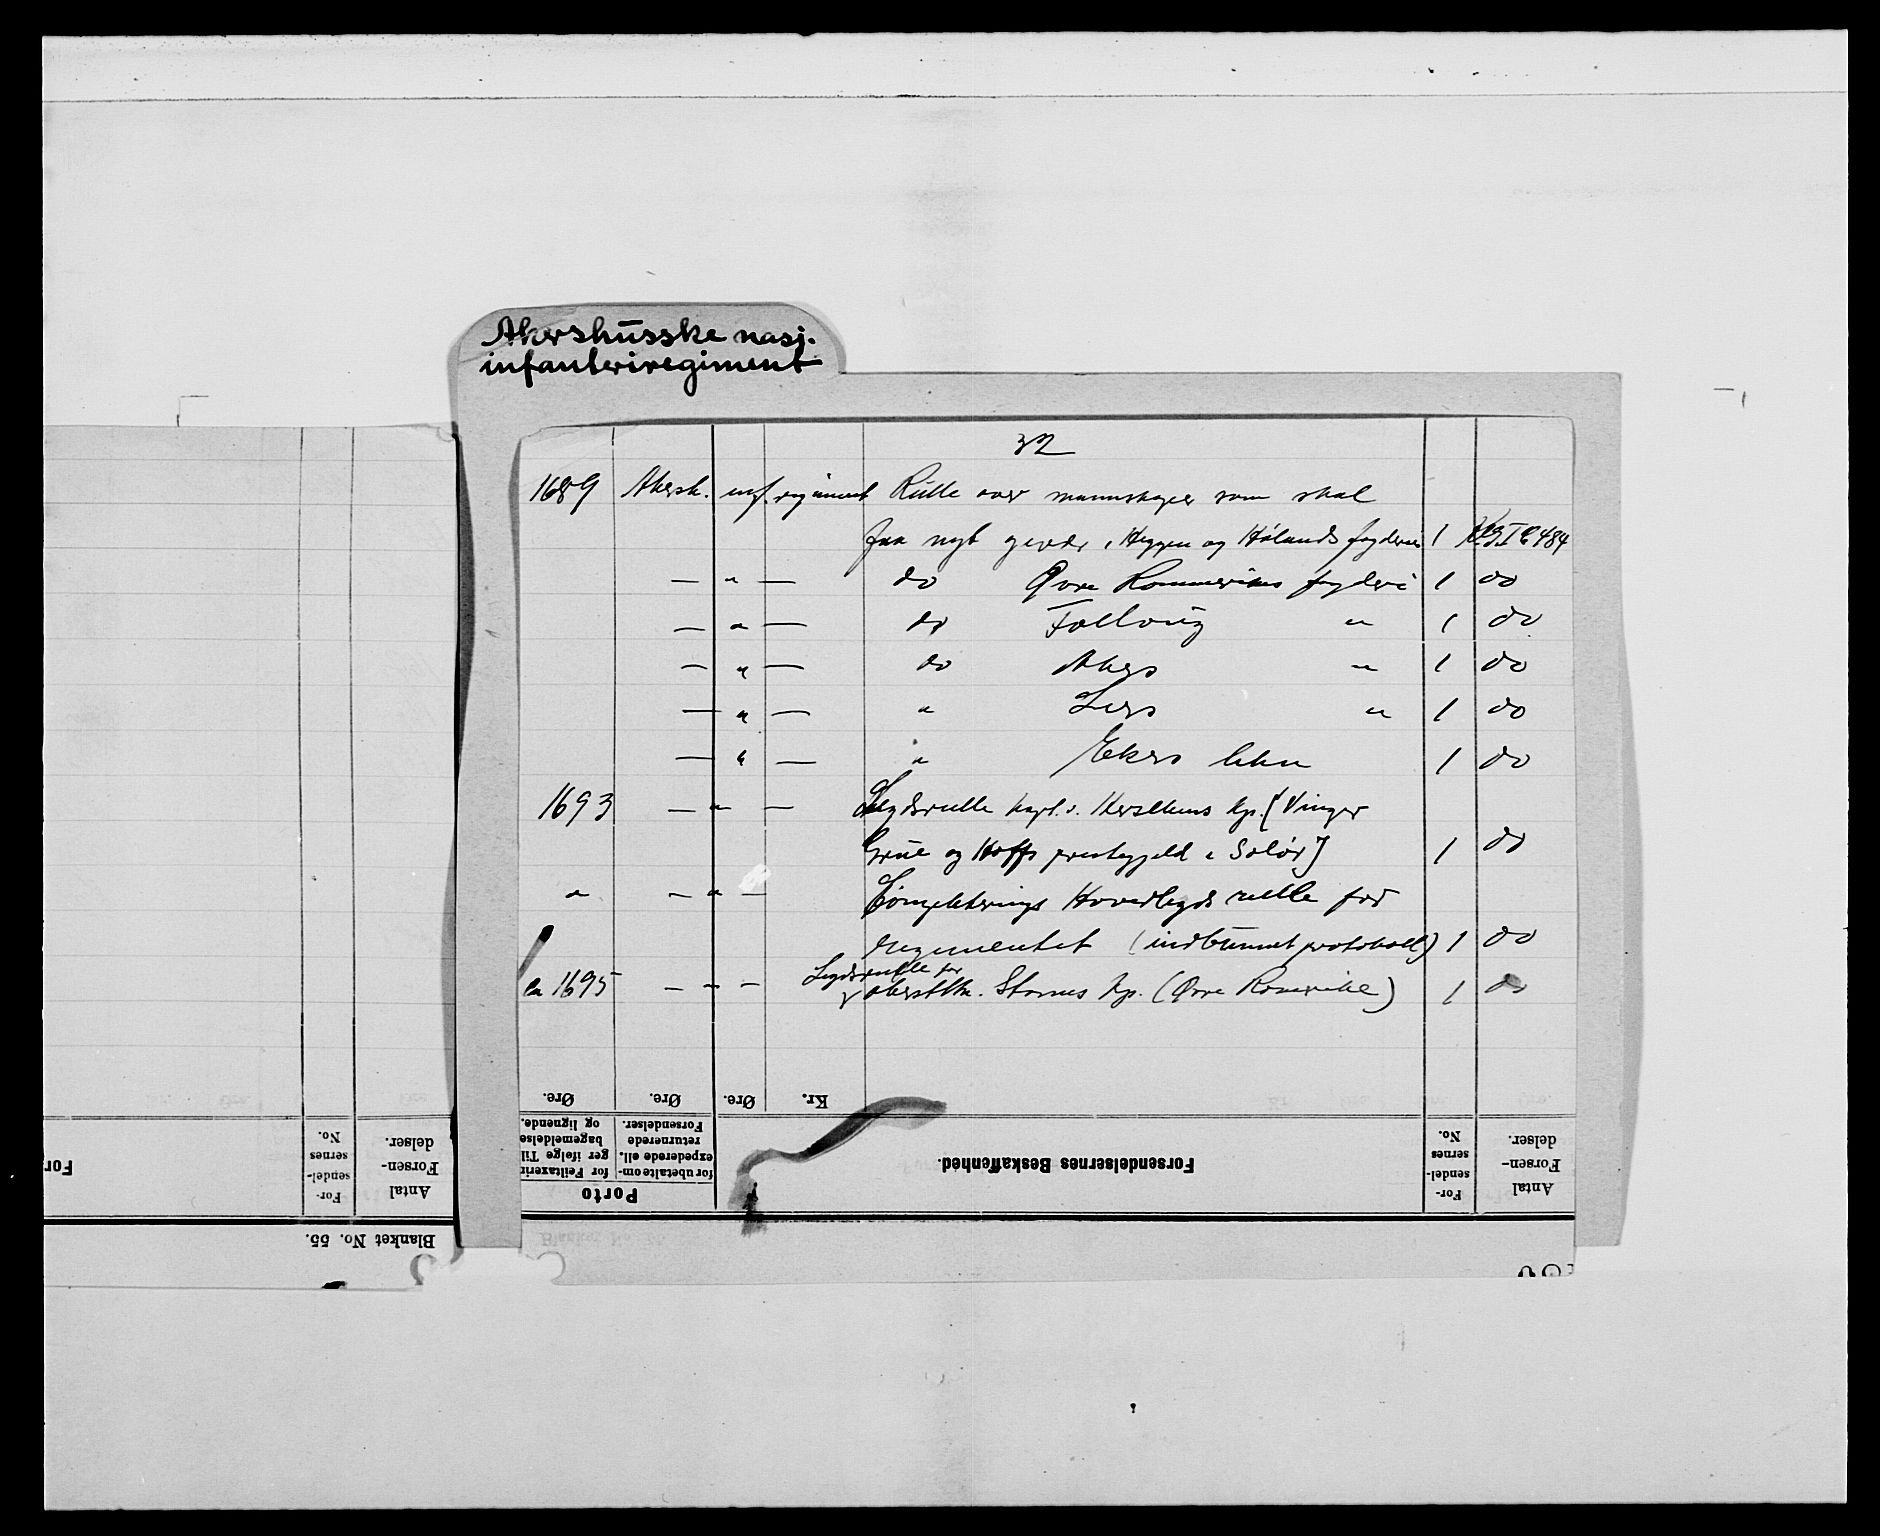 Akershusske nasj.
infanteriregiment
32
1689 Akersh. inf. regiment Rulle over mannskaper som skal
faa nyt gevær i Heggen og Hølands fogderi 1
— " — do Øvre Rommerikes fogderi 1 do
— " — do Folloug " 1 do
— " — do Akers " 1 do
— " — " Liers " 1 do
— " — " Ekers lehn 1 do
1693 — " — Legdsrulle kapt. v. Kp. (Vinger
Grue og Hoffs prestegjeld i Solør) 1 do
" — " — Completerings Hovedlegds rulle for
regimentet (indbunnet protokoll) 1 do
ca 1695 — " — Legdsrulle for
oberstltn. Storms kp. (Øvre Romerike) 1 do
Øre. Øre. Øre. Kr.
Porto
for Feiltaxerin
ger ifølge Til
bagemeldelse
og lignende.
for ubetalte om-
expederede ell.
returnerede
Forsendelser.
Forsendelsernes Beskaffenhed.
For-
sendel-
sernes
No.
Antal
Forsen-
delser.
For
For-
sendel-
sernes
No.
Antal
Forsen-
delser.
Blanket No. 55.